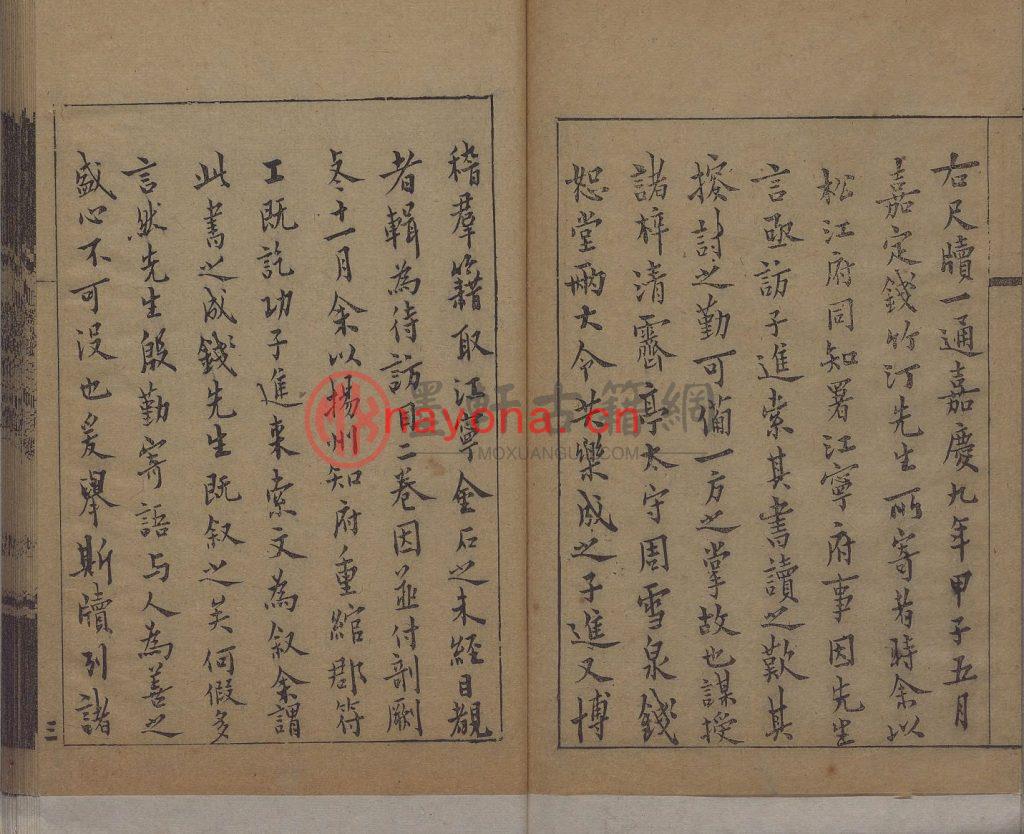 右尺牘一通嘉慶九年甲子五月
嘉定錢竹汀先生所寄者時余以
松江府同知署江寧府事因先生
言亟訪子進索其書讀之歎其
搜討之勤可備一方之掌故也謀授
諸梓清霽亭太守周雪泉錢
恕堂兩大令共樂成之子進又博
稽羣籍取江寧金石之未經目覩
者輯為待訪目二卷因並付剞劂
冬十一月余以揚州知府重綰郡符
工既訖功子進來索文為叙余謂
此書之成錢先生既叙之美何假多
言然先生殷勤寄語与人為善之
盛心不可没也爰舉斯牘列諸
三
墨軒古籍網
nayona.cn
MOXUANGUJI.COM